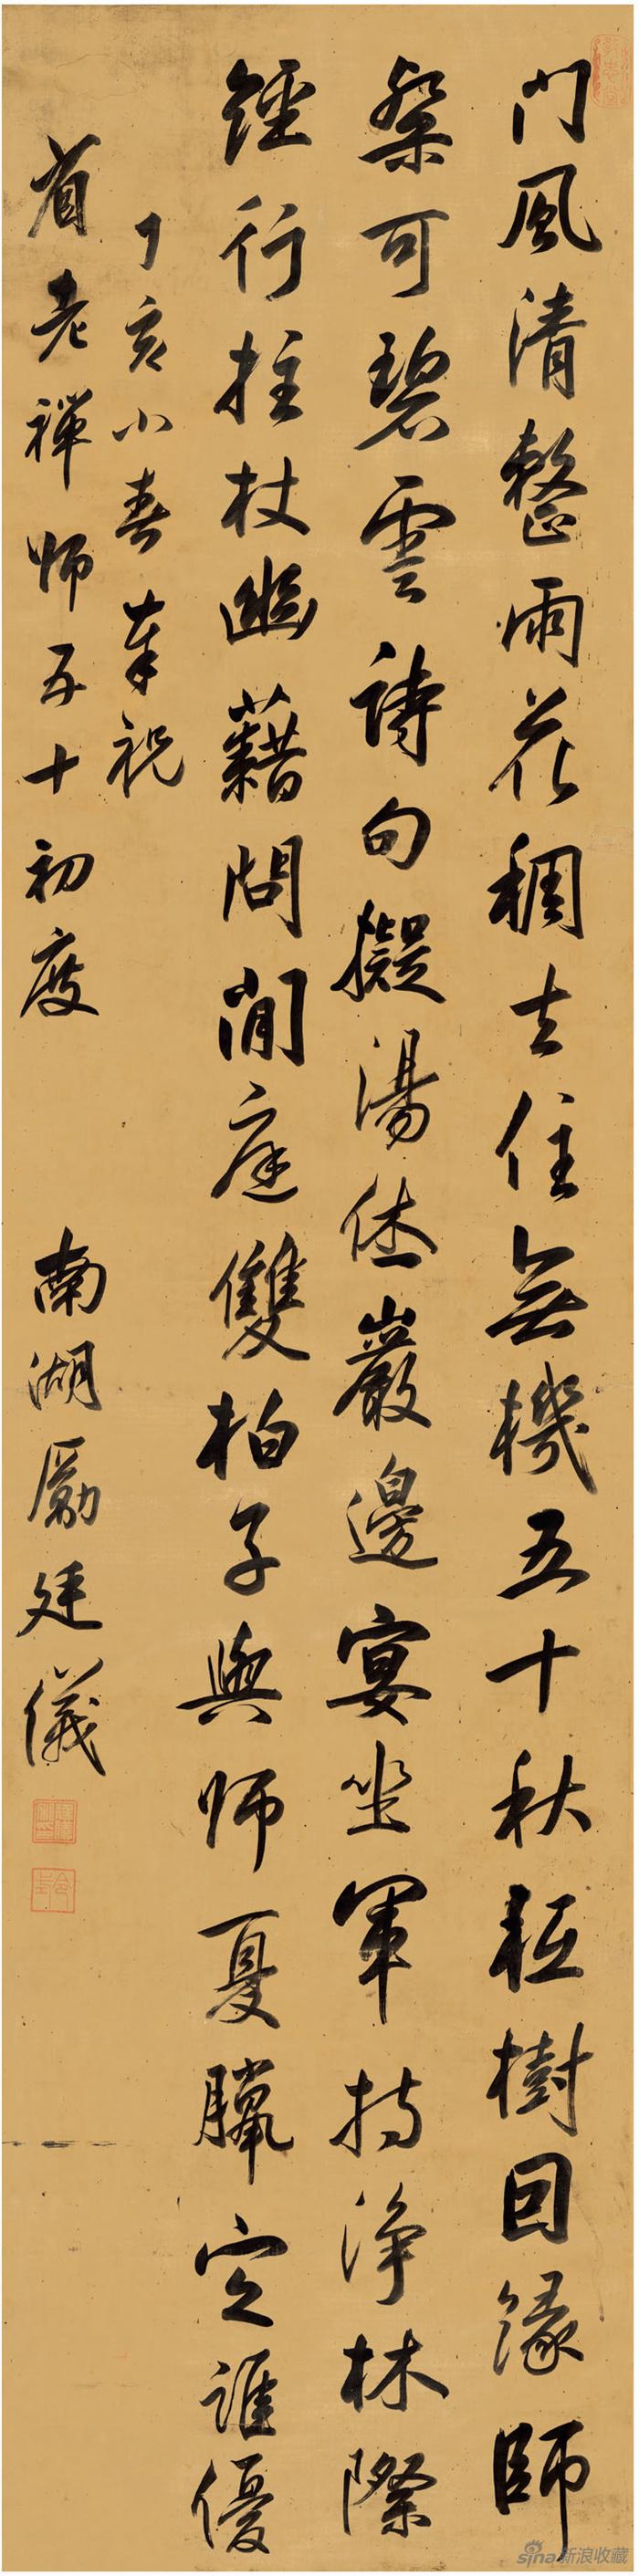 門風清整雨花稠去住無機五十秋短樹因緣師
粲可碧雲詩句擬湯休巖邊宴坐軍持淨林際
經行拄杖幽藉問閒庭雙柏子與師夏臘定誰優
丁亥小春奉祝
省老禪師五十初度
南湖勵廷儀
sina新浪收藏